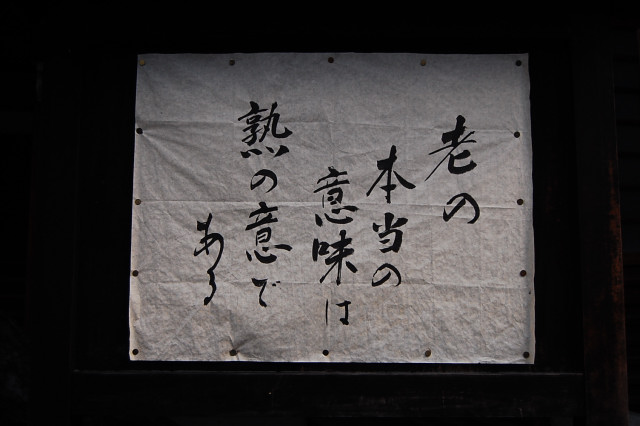 老の
本当の
意味は
熟の意で
ある